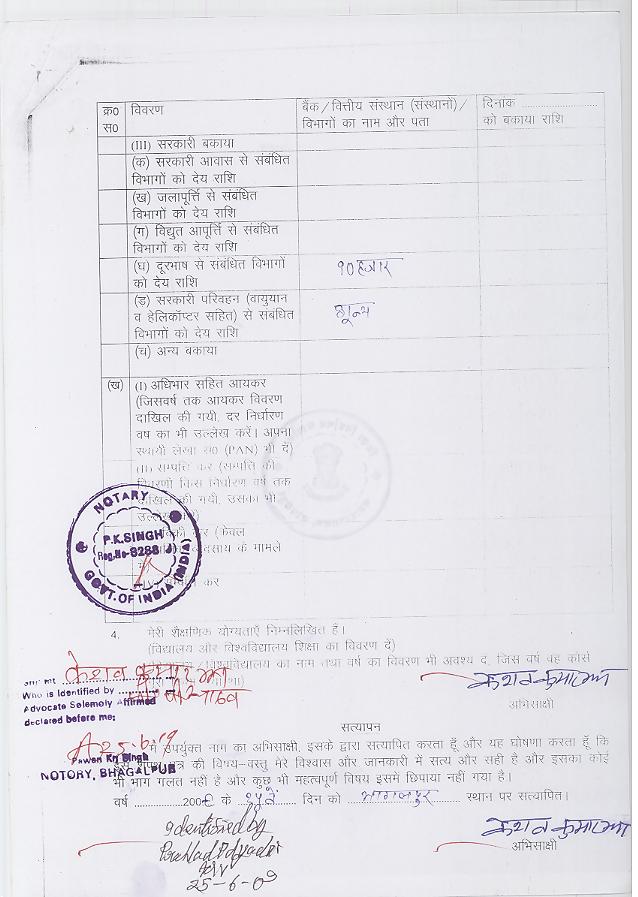 क्र0 विवरण बैंक/वित्तीय संस्थान (संस्थानों)/ दिनांक ........................
स0 विभागों का नाम और पता को बकाया राशि
(III) सरकारी बकाया
(क) सरकारी आवास से संबंधित
विभागों को देय राशि
(ख) जलापूर्त्ति से संबंधित
विभागों को देय राशि
(ग) विद्युत आपूर्त्ति से संबंधित
विभागों को देय राशि
(घ) दूरभाष से संबंधित विभागों १०हजार
को देय राशि
(ड) सरकारी परिवहन (वायुयान शून्य
व हेलिकॉप्टर सहित) से संबंधित
विभागों को देय राशि
(च) अन्य बकाया
(ख) (I) अधिभार सहित आयकर
(जिसवर्ष तक आयकर विवरण
दाखिल की गयी, दर निर्धारण
वर्ष का भी उल्लेख करें। अपना
स्थायी लेखा स0 (PAN) भी दें)
(II) सम्पत्ति कर (सम्पत्ति की
विवरणी किस निर्धारण वर्ष तक
दाखिल की गयी, उसका भी
NOTARY
P.K.SINGH
Reg.No-8288
GOVT. OF INDIA (INDIA)
कर (केवल
के मामले
कर
4. मेरी शैक्षणिक योग्यताएँ निम्नलिखित हैं।
(विद्यालय और विश्वविद्यालय शिक्षा का विवरण दें)
/विश्वविद्यालय का नाम तथा वर्ष का विवरण भी अवश्य दें, जिस वर्ष वह कोर्स
केशव कुमार झा
Who is Identified by
Advocate Solemoly Affirmed
declared before me;
केशव कुमार झा
अभिसाक्षी
सत्यापन
25-6-09
Pawan Kr Singh
NOTORY, BHAGALPUR
मैं उपर्युक्त नाम का अभिसाक्षी, इसके द्वारा सत्यापित करता हूँ और यह घोषणा करता हूँ कि
पत्र की विषय-वस्तु मेरे विश्वास और जानकारी में सत्य और सही है और इसका कोई
भी भाग गलत नहीं है और कुछ भी महत्वपूर्ण विषय इसमें छिपाया नहीं गया है।
वर्ष ............200९ के २५ जून दिन को भागलपुर स्थान पर सत्यापित।
Identified by
केशव कुमार झा
अभिसाक्षी
25-6-09